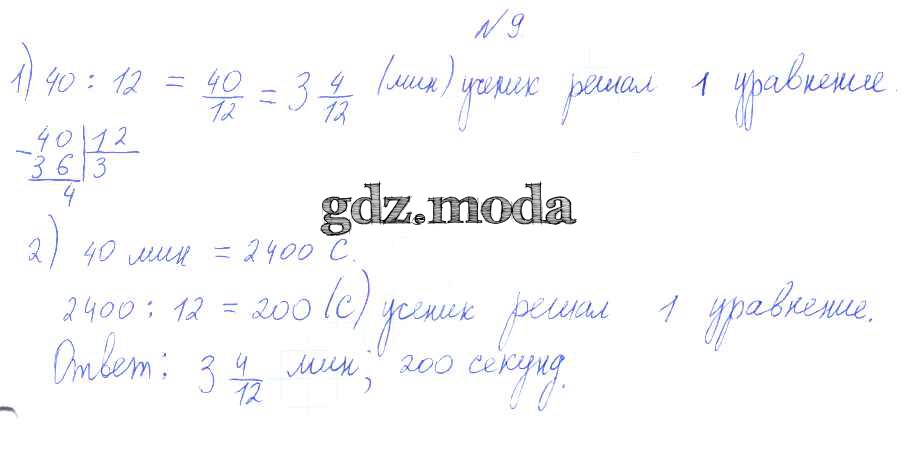 № 9
1) 40 : 12 = 40/12 = 3 4/12 (мин) ученик решал 1 уравнение.
- 40 | 12
36 | 3
4
gdz.moda
2) 40 мин = 2400 с.
2400 : 12 = 200 (с) ученик решал 1 уравнение.
Ответ: 3 4/12 мин; 200 секунд.